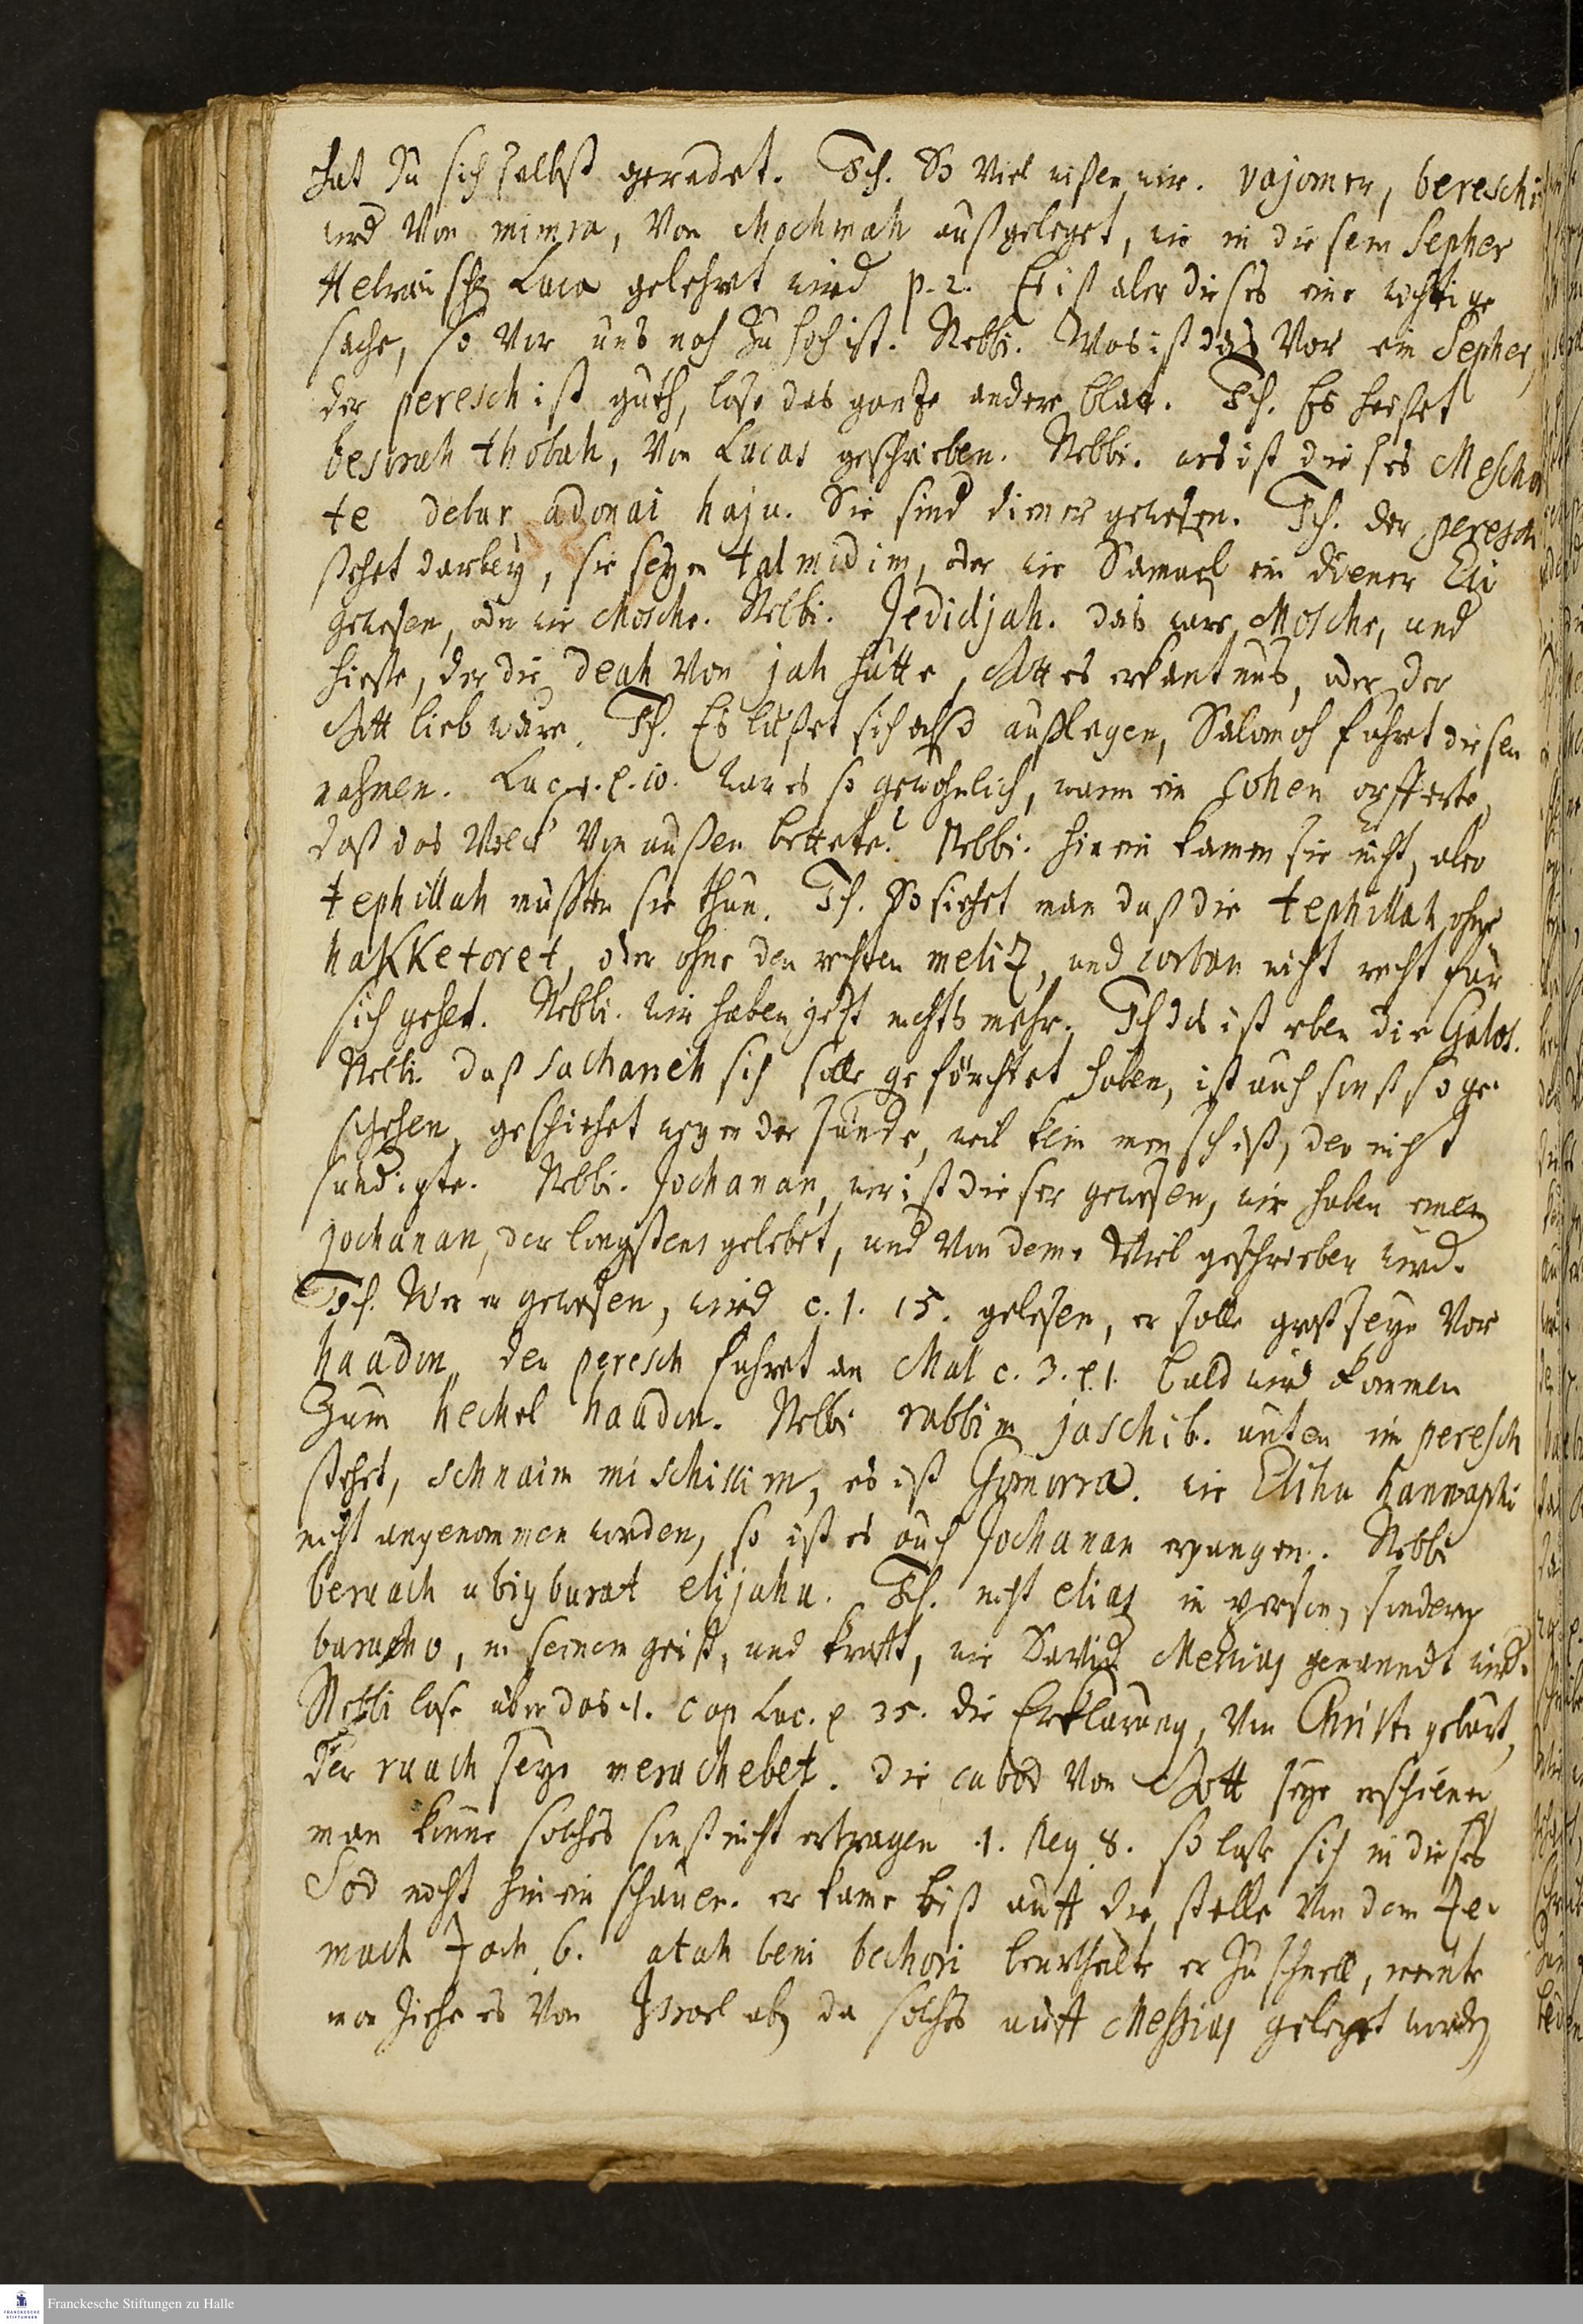 hat zu sich selbst geredet. Ich. So viel wißen wir. vajomer, bereschit
wird von mimra, von chochmah außgeleget, wie in diesem Sepher
Hebraisch Luca gelehret wird p. 2. Es ist aber dieses eine wichtige
sache, so vor uns noch zu hoch ist. Rebbi. Was ist das vor ein Sepher,
der peresch ist guth, lase das gantze andere blat. Ich. Es heiset
besorah thobah, von Lucas geschrieben. Rebbi. was ist dieses Mescha
te debar adonai haju. Sie sind diener gewesen. Ich. der peresch
stehet darbey, sie seyen talmidim, oder wie Samuel ein diener Eli
gewesen, oder wie Mosche. Rebbi. Jedidjah. das ware Mosche, und
hieße, der die deah von jah hätte, Gottes erkantnus, oder der
Gott lieb wäre. Ich. Es läßet sich also außlegen, Salomoh führet diesen
nahmen. Luc. 1. v. 10. war es so gewöhnlich, wann ein Cohen opfferte,
daß das Volck von außen bettete? Rebbi. hinein kamen sie nicht, aber
tephillah mußten sie thun. Ich. So siehet man daß die tephillah ohne
hakketoret, oder ohne den rechten meliz, und corban nicht recht für
sich gehet. Rebbi. wir haben jetzt nichts mehr. Ich das ist eben die Galos.
Rebbi. daß Sachariah sich solle geförchtet haben, ist auch sonst so ge-
schehen, geschiehet wegen der sünde, weil kein mensch ist, der nicht
sündigte. Rebbi. Jochanan, wer ist dieser gewesen, wir haben einen
jochanan, der longstens gelebet, und von deme viel geschrieben wird.
Ich. Wer er gewesen, wird c. 1. 15. gelesen, er solle groß seyn vor
haadon, der peresch führet an Mal c. 3. v. 1. bald wird kommen
zum hechel haadon. Rebbi rabbim jaschib. unten im peresch
stehet, schnaim mischissim, es ist Gomorra. wie Elihu hannaphi
nicht angenommen worden, so ist es auch Jochanan ergangen. Rebbi
beruach ubigburat elijahu. Ich. nicht elias in person, sondern
barucho, in seinem geist, und krafft, wie David Messias genandt wird.
Rebbi lase über das 1. Cap Luc. v 35. die Erklärung, von Christi geburt,
der ruach seye merachebet. die cabod von Gott seye erschienen
man könne solches sonst nicht ertragen 1. Reg 8. so laße sich in dieses
Sod nicht hinein schauen. er kame biß auff die stelle von dem Ze-
mach Zach. 6. atah beni bechori beurtheilte er zu schnell, meinte
man ziehe es von Israel ab, da solches auff Messias geleget worden
Franckesche Stiftungen zu Halle